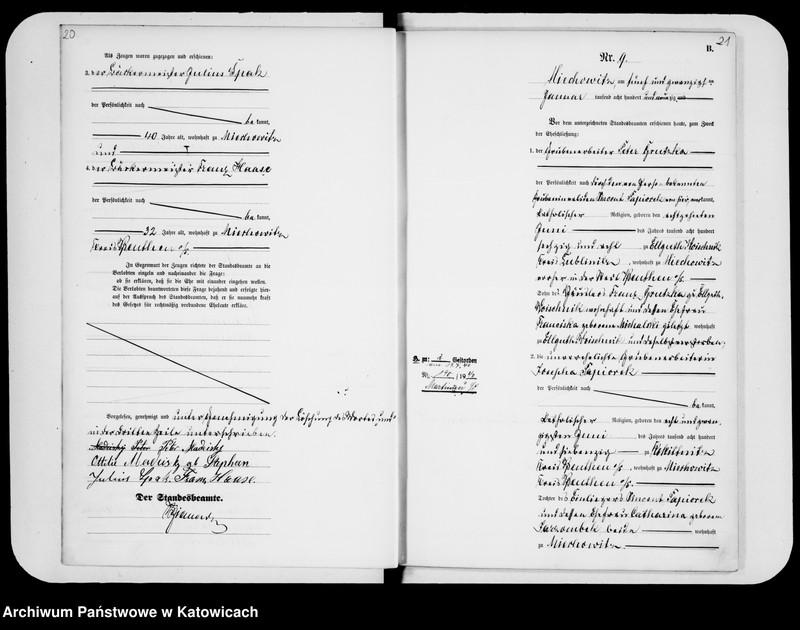 20
Als Zeugen waren zugezogen und erschienen:
3. der Bäckermeister Julius Spak
der Persönlichkeit nach
be kannt,
40 Jahre alt, wohnhaft zu Miechowitz
und
4. der Bäckermeister Franz Haase
der Persönlichkeit nach
be kannt,
32 Jahre alt, wohnhaft zu Miechowitz
Kreis Beuthen o/s.
In Gegenwart der Zeugen richtete der Standesbeamte an die
Verlobten einzeln und nacheinander die Frage:
ob sie erklären, daß sie die Ehe mit einander eingehen wollen.
Die Verlobten beantworteten diese Frage bejahend und erfolgte hier-
auf der Ausspruch des Standesbeamten, daß er sie nunmehr kraft
des Gesetzes für rechtmäßig verbundene Eheleute erkläre.
Vorgelesen, genehmigt und unter Genehmigung der Löschung des Wortes und
in der dritten Zeile unterschrieben.
Peter
Ottilie gb Stephan
Julius Spak. Franz Haase.
Der Standesbeamte.
21
B.
Nr. 9.
Miechowitz, am fünf und zwanzigst en
Januar tausend acht hundert und neunzig
Vor dem unterzeichneten Standesbeamten erschienen heute, zum Zweck
der Eheschließung:
1. der Grubenarbeiter Peter
der Persönlichkeit nach durch den von Person bekannten
Grubeninvaliden Vincent Sapiorek von hier, kannt,
katholischer Religion, geboren den achtzehnten
Juni des Jahres tausend acht hundert
sechzig und acht zu Ellguth Woischnik
Kreis Lublinitz, wohnhaft zu Miechowitz
Kreis Beuthen o/s.
Sohn des Häuslers Franz zu Ellguth
Woischnik wohnhaft und dessen Ehefrau
Franciska geborene Michalski zuletzt wohnhaft
zu Ellguth Woischnik und daselbst verstorben.
2. die unverehelichte Grubenarbeiterin
Josepha Sapiorek
der Persönlichkeit nach
be kannt,
katholischer Religion, geboren den acht und zwan-
zigsten Juni des Jahres tausend acht hundert
und siebenzig zu Rokittnitz
Kreis Beuthen o/s., wohnhaft zu Miechowitz
Kreis Beuthen o/s.
Tochter des Einliegers Vincent Sapiorek
und dessen Ehefrau Catharina geborene
beide wohnhaft
zu Miechowitz.
H. zu: Gestorben
Nr. 140 / 19
Archiwum Państwowe w Katowicach